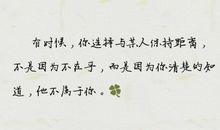 有时候，你选择与某人保持距离，
不是因为不在乎，而是因为你清楚的知
道，他不属于你。